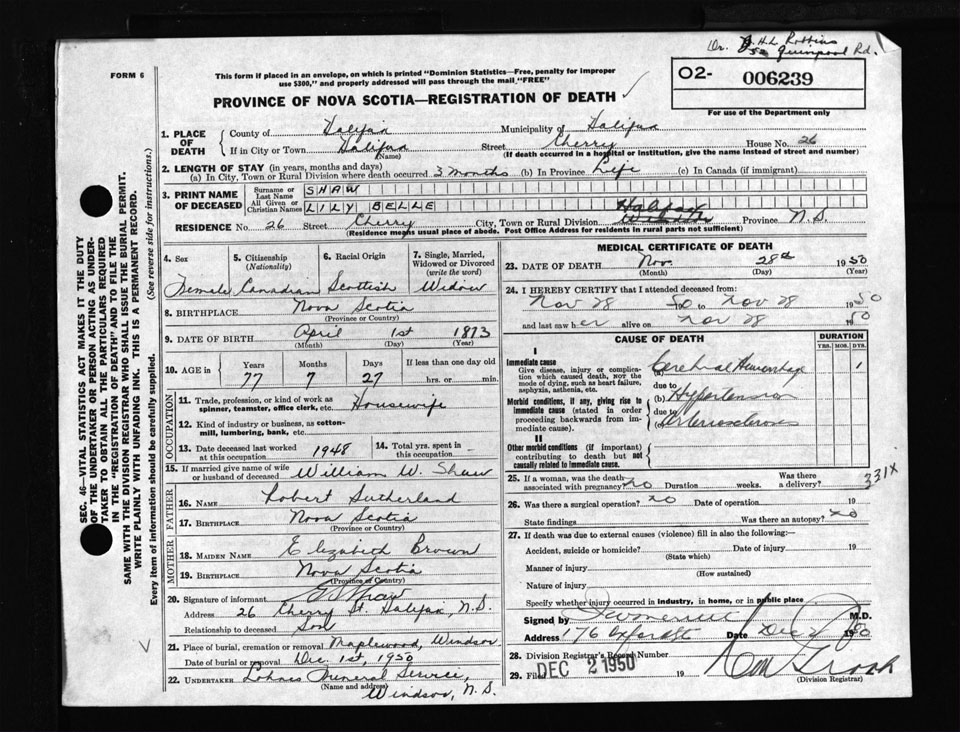 Dr. H.L. Robbins
Quinpool Rd.
FORM 6
This form if placed in an envelope, on which is printed "Dominion Statistics—Free, penalty for improper
use $300," and properly addressed will pass through the mail "FREE"
O2- 006239
PROVINCE OF NOVA SCOTIA—REGISTRATION OF DEATH ✓
For use of the Department only
1. PLACE OF DEATH
County of Halifax Municipality of Halifax
If in City or Town Halifax Street Cherry House No. 26
(Name) (If death occurred in a hospital or institution, give the name instead of street and number)
2. LENGTH OF STAY (in years, months and days)
(a) In City, Town or Rural Division where death occurred 3 months (b) In Province Life (c) In Canada (if immigrant)
3. PRINT NAME OF DECEASED
Surname or Last Name SHAW
All Given or Christian Names LILY BELLE
RESIDENCE No. 26 Street Cherry City, Town or Rural Division Halifax Province N.S.
(Residence means usual place of abode. Post Office Address for residents in rural parts not sufficient)
4. Sex Female
5. Citizenship (Nationality) Canadian
6. Racial Origin Scottish
7. Single, Married, Widowed or Divorced (write the word) Widow
8. BIRTHPLACE Nova Scotia
(Province or Country)
9. DATE OF BIRTH April 1st 1873
(Month) (Day) (Year)
10. AGE in Years Months Days If less than one day old
77 7 27 hrs. or min.
OCCUPATION
11. Trade, profession, or kind of work as
spinner, teamster, office clerk, etc. Housewife
12. Kind of industry or business, as cotton-
mill, lumbering, bank, etc.
13. Date deceased last worked at this occupation 1948
14. Total yrs. spent in this occupation -
15. If married give name of wife
or husband of deceased William W. Shaw
FATHER
16. NAME Robert Sutherland
17. BIRTHPLACE Nova Scotia
(Province or Country)
MOTHER
18. MAIDEN NAME Elizabeth Brown
19. BIRTHPLACE Nova Scotia
(Province or Country)
20. Signature of informant Shaw
Address 26 Cherry St. Halifax, N.S.
Relationship to deceased Son
21. Place of burial, cremation or removal Maplewood, Windsor
Date of burial or removal Dec. 1st, 1950
22. UNDERTAKER Funeral Service,
(Name and address) Windsor, N.S.
MEDICAL CERTIFICATE OF DEATH
23. DATE OF DEATH Nov. 28th 1950
(Month) (Day) (Year)
24. I HEREBY CERTIFY that I attended deceased from:
Nov 28 50 to Nov 28 1950
and last saw her alive on Nov 28 1950
CAUSE OF DEATH
DURATION
YRS. MOS. DYS.
I
Immediate cause
Give disease, injury or complication which caused death, NOT the mode of dying, such as heart failure, asphyxia, asthenia, etc.
(a) Cerebral Hemorrhage 1
due to
Morbid conditions, if any, giving rise to immediate cause (stated in order proceeding backwards from immediate cause).
(b) Hypertension
due to
(c) Arteriosclerosis
II
Other morbid conditions (if important) contributing to death but not causally related to immediate cause.
25. If a woman, was the death associated with pregnancy? no Duration weeks. Was there a delivery?
331X
26. Was there a surgical operation? no Date of operation 19
State findings Was there an autopsy? no
27. If death was due to external causes (violence) fill in also the following:—
Accident, suicide or homicide? Date of injury 19
(State which)
Manner of injury
(How sustained)
Nature of injury
Specify whether injury occurred in industry, in home, or in public place
Signed by M.D.
Address 176 Oxford St Date Dec 2 1950
28. Division Registrar's Record Number
29. Filed DEC 2 1950 19
(Division Registrar)
SEC. 46—VITAL STATISTICS ACT MAKES IT THE DUTY
OF THE UNDERTAKER OR PERSON ACTING AS UNDER-
TAKER TO OBTAIN ALL THE PARTICULARS REQUIRED
IN THE "REGISTRATION OF DEATH" AND TO FILE THE
SAME WITH THE DIVISION REGISTRAR WHO SHALL ISSUE THE BURIAL PERMIT.
WRITE PLAINLY WITH UNFADING INK. THIS IS A PERMANENT RECORD.
Every item of information should be carefully supplied. (See reverse side for instructions.)